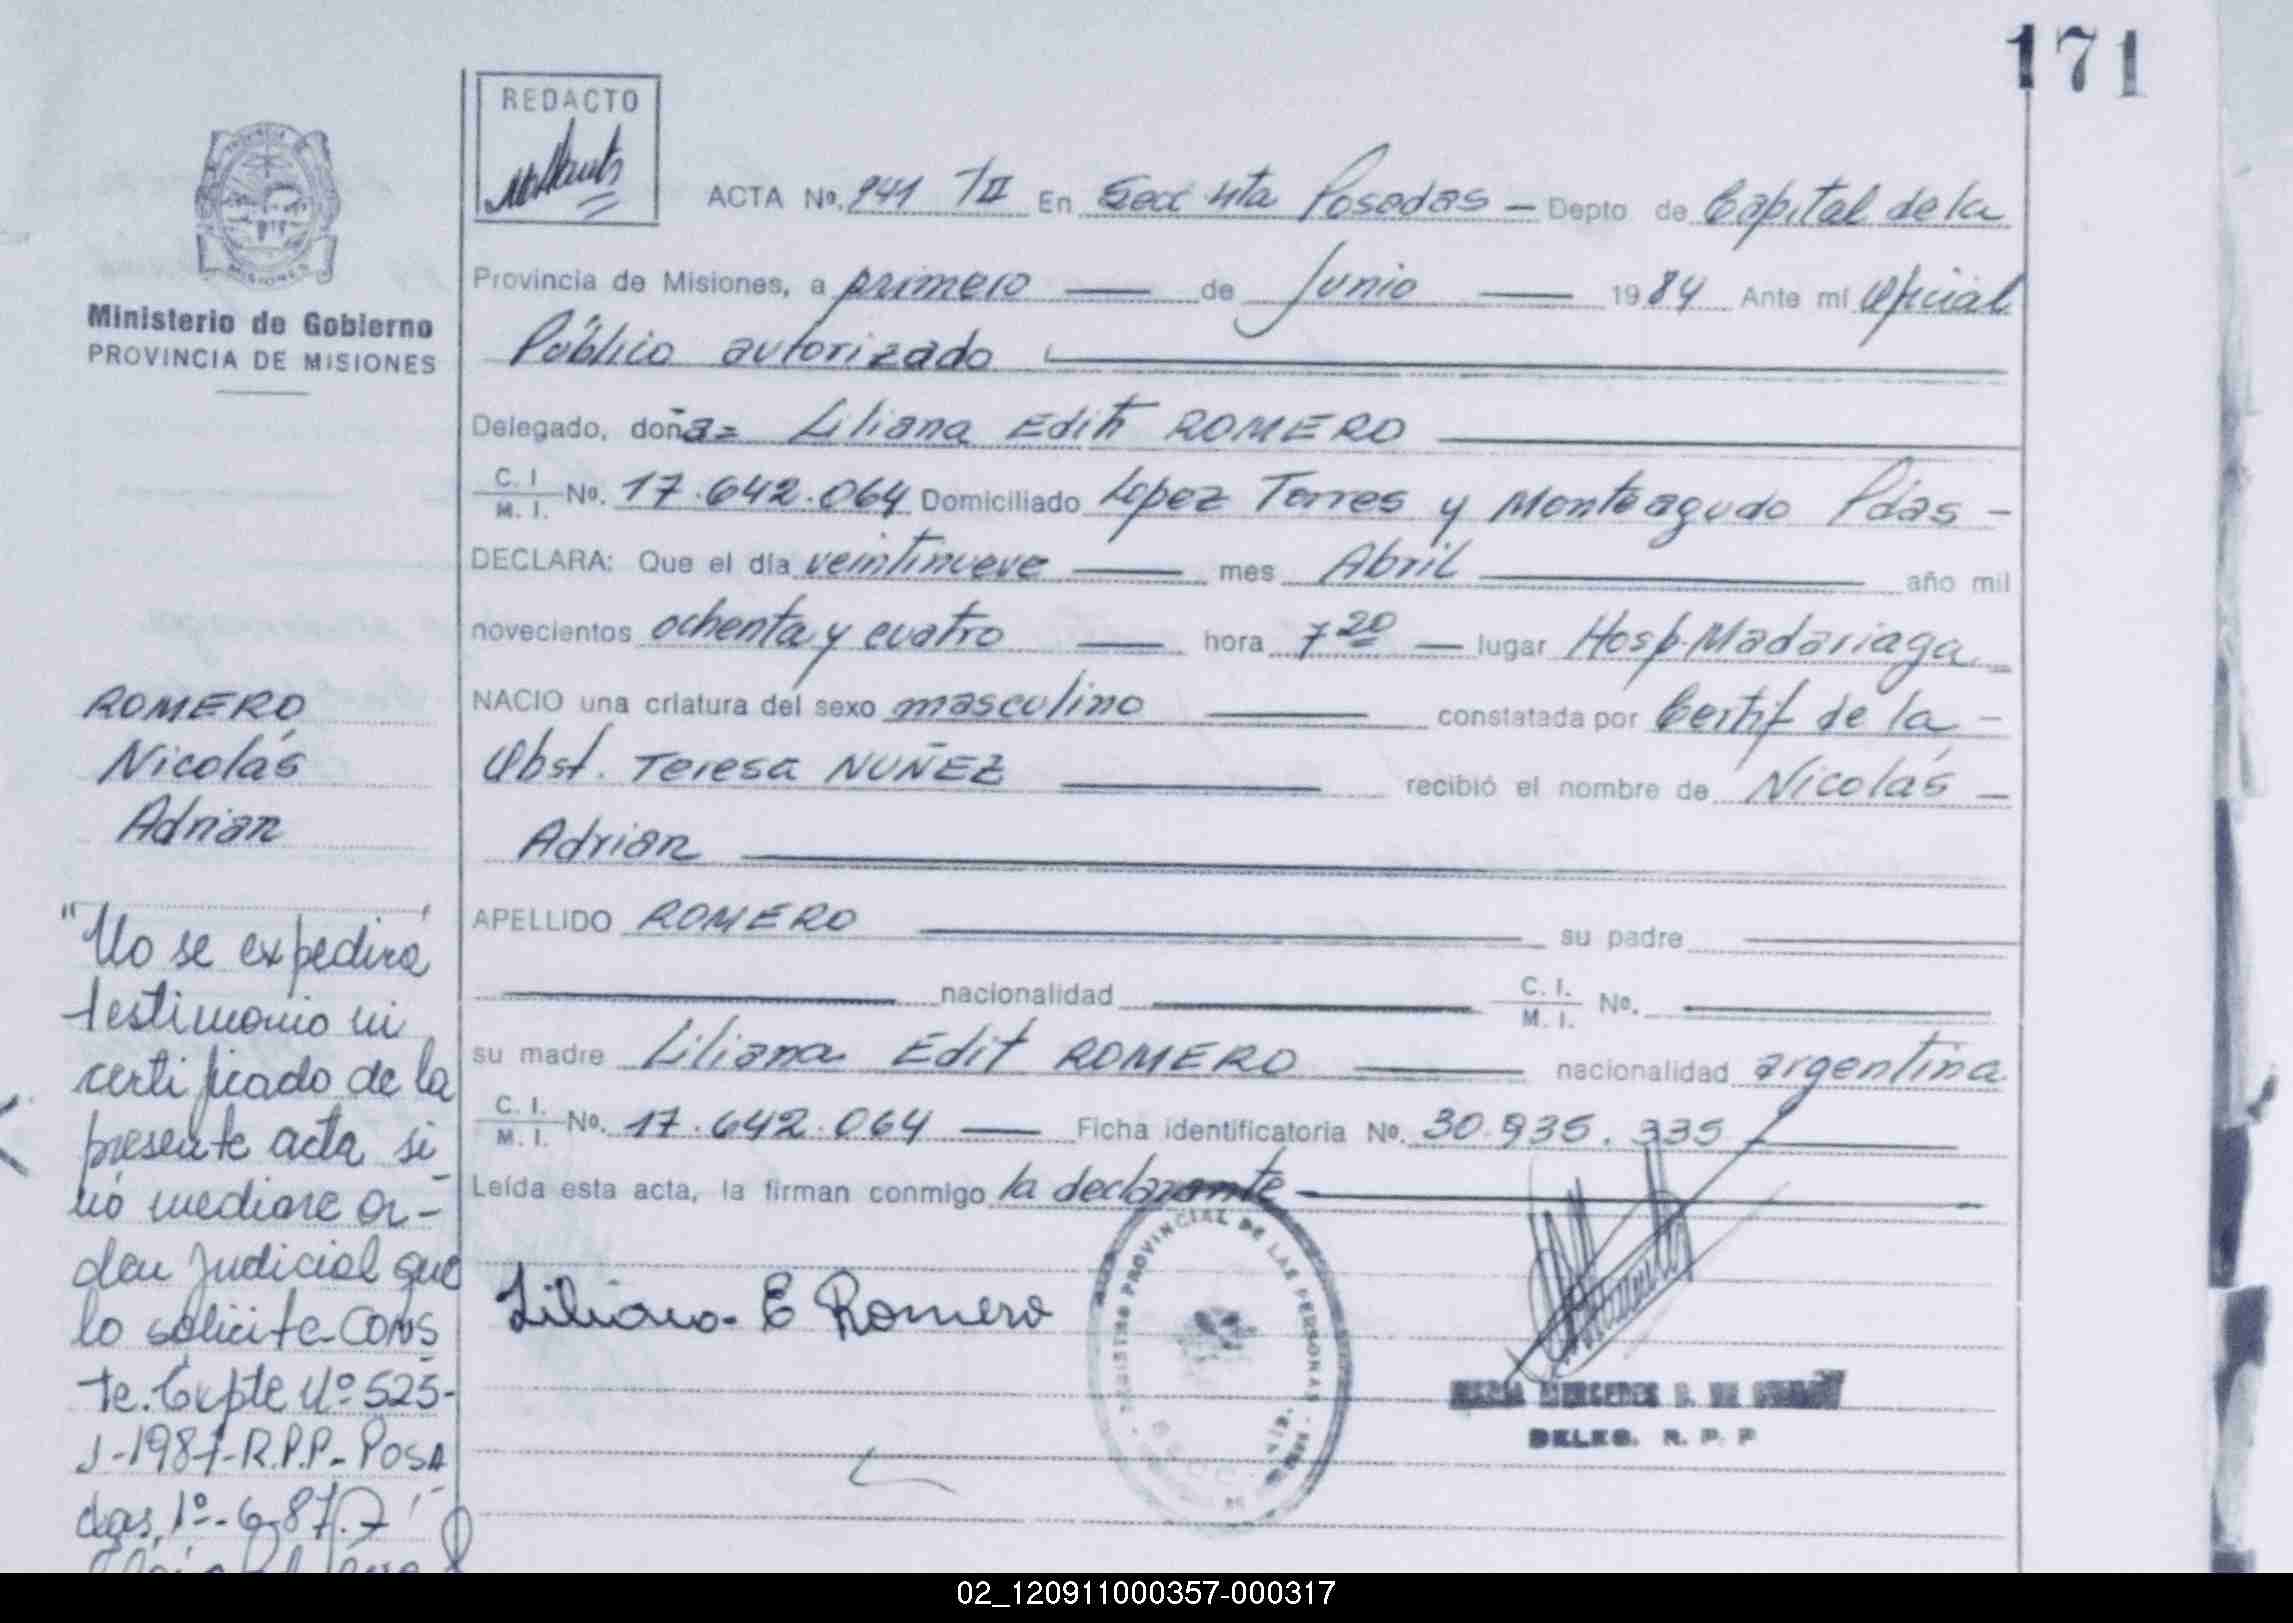 171
REDACTO
ACTA No. 941 T II En Secc 4ta Posadas — Depto de Capital de la
Provincia de Misiones, a primero — de Junio — 1984 Ante mí Oficial
Público autorizado
Ministerio de Gobierno
PROVINCIA DE MISIONES
Delegado, doña= Liliana Edith ROMERO
C. I. / M. I. No. 17.642.064 Domiciliado Lopez Torres y Monteagudo Pdas -
DECLARA: Que el día veintinueve — mes Abril — año mil
novecientos ochenta y cuatro — hora 7 20 — lugar Hosp. Madariaga
NACIO una criatura del sexo masculino — constatada por Certif de la -
Obst. Teresa NUÑEZ — recibió el nombre de Nicolás —
Adrian
APELLIDO ROMERO — su padre —
— nacionalidad — C. I. / M. I. No. —
su madre Liliana Edit ROMERO — nacionalidad argentina
C. I. / M. I. No. 17.642.064 — Ficha identificatoria No. 30.935.335 —
Leída esta acta, la firman conmigo la declarante —
Liliana E Romero
REGISTRO PROVINCIAL DE LAS PERSONAS
DELEG. R. P. P
ROMERO
Nicolás
Adrian
"No se expedirá
testimonio ni
certificado de la
presente acta si
nó mediare or-
den judicial que
lo solicite. Cons
te. Expte Nº 525-
J-1987-R.P.P.- Posa
das, 1º-6-87.
02_120911000357-000317